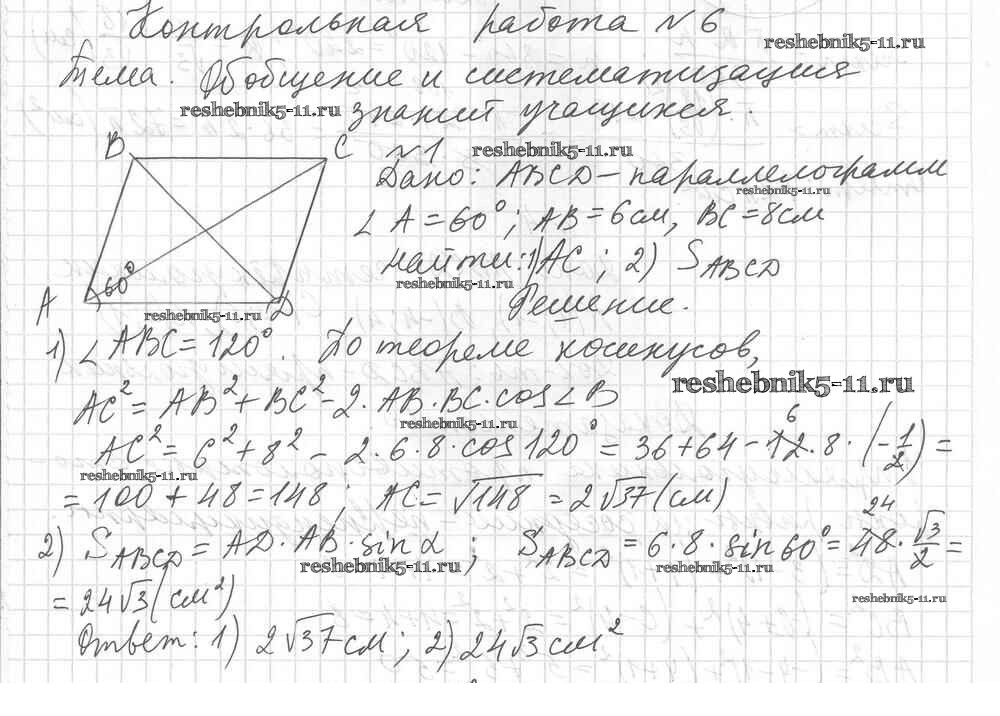 Контрольная работа №6
reshebnik5-11.ru
Тема. Обобщение и систематизация
reshebnik5-11.ru знаний учащихся.
B C №1 reshebnik5-11.ru
Дано: ABCD – параллелограмм
reshebnik5-11.ru
∠A = 60°; AB = 6 см, BC = 8 см
Найти: 1) AC; 2) S_ABCD
reshebnik5-11.ru
A 60° D Решение.
reshebnik5-11.ru
1) ∠ABC = 120°. По теореме косинусов,
reshebnik5-11.ru
AC² = AB² + BC² - 2·AB·BC·cos∠B
reshebnik5-11.ru
AC² = 6² + 8² - 2·6·8·cos120° = 36 + 64 - 12·8·(-1/2) =
6
reshebnik5-11.ru
= 100 + 48 = 148; AC = √148 = 2√37 (см)
24
2) S_ABCD = AD·AB·sinα; S_ABCD = 6·8·sin60° = 48·√3/2 =
reshebnik5-11.ru reshebnik5-11.ru
= 24√3 (см²)
reshebnik5-11.ru
Ответ: 1) 2√37 см; 2) 24√3 см²